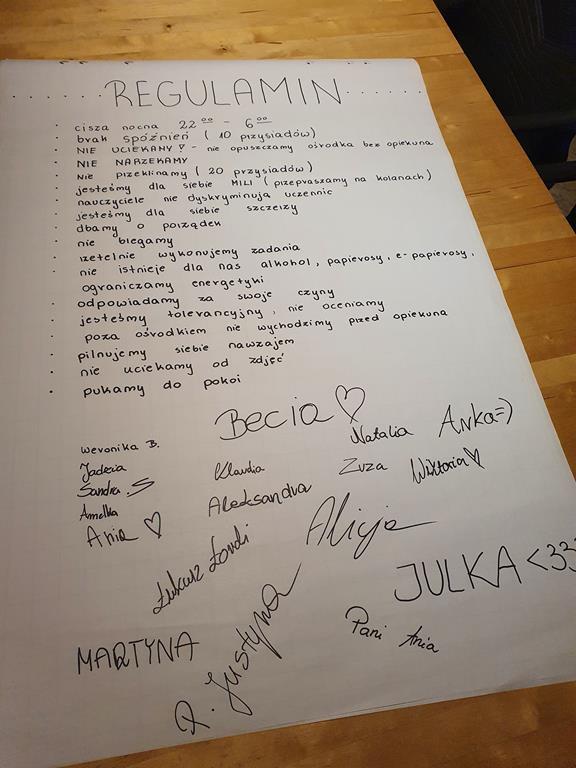 REGULAMIN
· cisza nocna 22 00 - 6 00
· brak spóźnień ( 10 przysiadów)
· NIE UCIEKAMY! - nie opuszczamy ośrodka bez opiekuna
· NIE NARZEKAMY
· Nie przeklinamy ( 20 przysiadów)
· jesteśmy dla siebie MILI ( przepraszamy na kolanach)
· nauczyciele nie dyskryminują uczennic
· jesteśmy dla siebie szczerzy
· dbamy o porządek
· nie biegamy
· rzetelnie wykonujemy zadania
· nie istnieje dla nas alkohol, papierosy, e-papierosy,
ograniczamy energetyki
· odpowiadamy za swoje czyny
· jesteśmy tolerancyjny, nie oceniamy
· poza ośrodkiem nie wychodzimy przed opiekuna
· pilnujemy siebie nawzajem
· nie uciekamy od zdjęć
· pukamy do pokoi
Becia ♡
Weronika B. Natalia Anka=)
Jadwia Klaudia Zuza Wiktoria ♡
Sandra S
Amelka Aleksandra
Ania ♡ Alicja
Łukasz
JULKA <333
MARTYNA P. Justyna Pani Ania